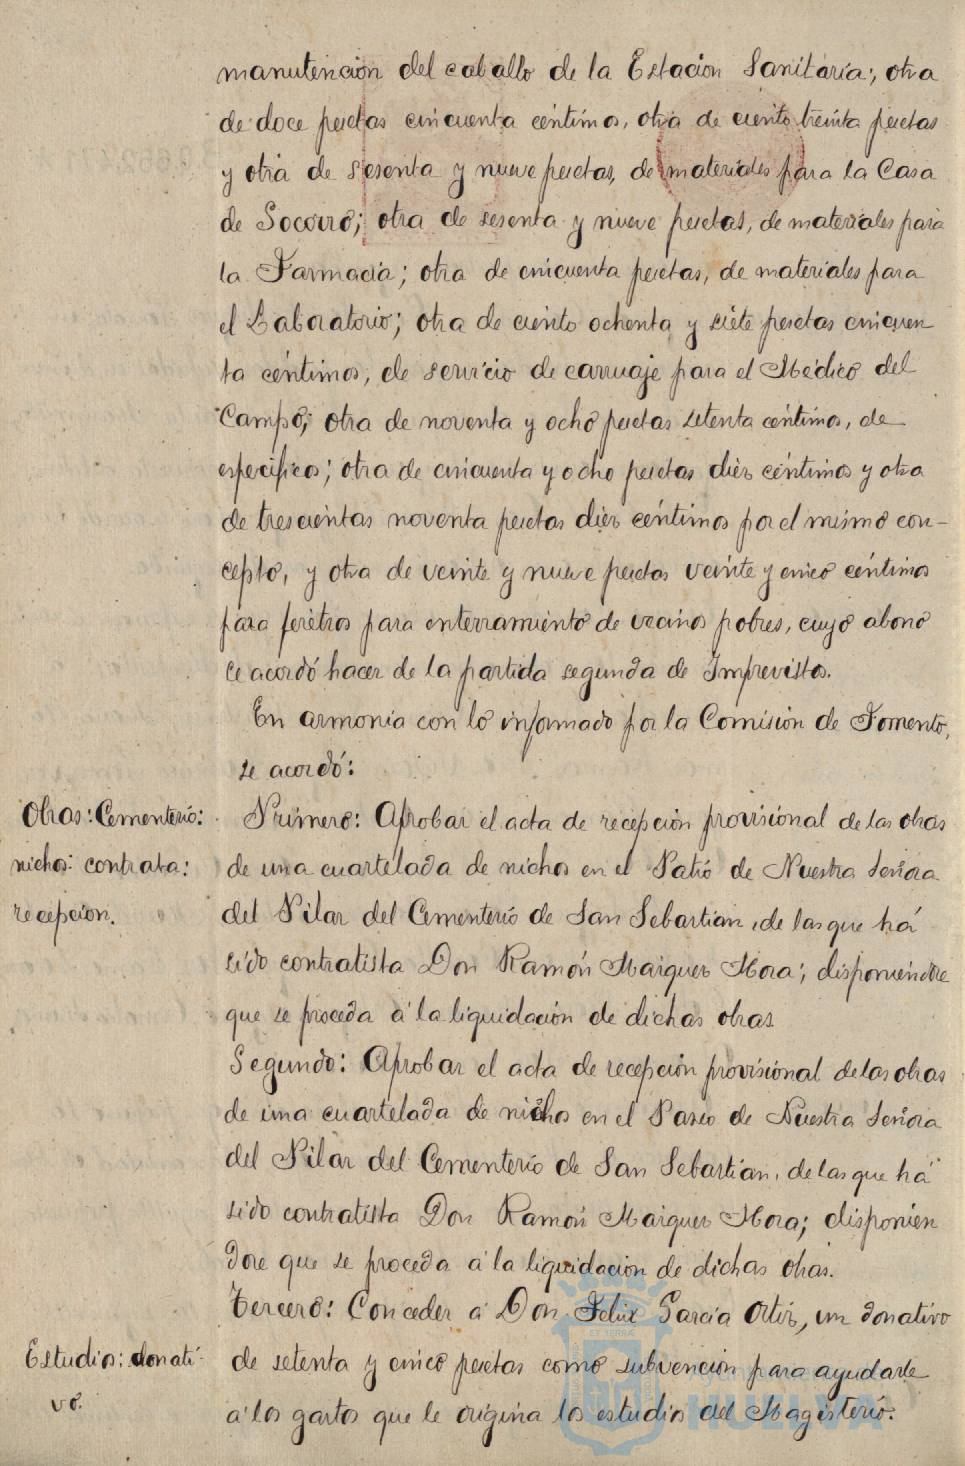 manutención del caballo de la Estación Sanitaria; otra
de doce pesetas cincuenta céntimos, otra de ciento treinta pesetas
y otra de sesenta y nueve pesetas, de materiales para la Casa
de Socorro; otra de sesenta y nueve pesetas, de materiales para
la Farmacia; otra de cincuenta pesetas, de materiales para
el Laboratorio; otra de ciento ochenta y siete pesetas cincuen
ta céntimos, de servicio de carruaje para el Médico del
Campo; otra de noventa y ocho pesetas setenta céntimos, de
específicos; otra de cincuenta y ocho pesetas diez céntimos y otra
de trescientas noventa pesetas diez céntimos por el mismo con-
cepto, y otra de veinte y nueve pesetas veinte y cinco céntimos
para féretros para enterramiento de vecinos pobres, cuyo abono
se acordó hacer de la partida segunda de Imprevistos.
En armonía con lo informado por la Comisión de Fomento,
se acordó:
Obras: Cementerio:
nichos: contrata:
recepción.
Primero: Aprobar el acta de recepción provisional de las obras
de una cuartelada de nichos en el Patio de Nuestra Señora
del Pilar del Cementerio de San Sebastián, de las que há
sido contratista Don Ramón Maiquez Mora; disponiéndose
que se proceda á la liquidación de dichas obras
Segundo: Aprobar el acta de recepción provisional de las obras
de una cuartelada de nichos en el Paseo de Nuestra Señora
del Pilar del Cementerio de San Sebastián, de las que há
sido contratista Don Ramón Maiquez Mora; disponien
dose que se proceda á la liquidación de dichas obras.
Estudios: donati-
vo.
Tercero: Conceder á Don Felix García Ortiz, un donativo
de setenta y cinco pesetas como subvención para ayudarle
á los gastos que le origina los estudios del Magisterio.
HUELVA